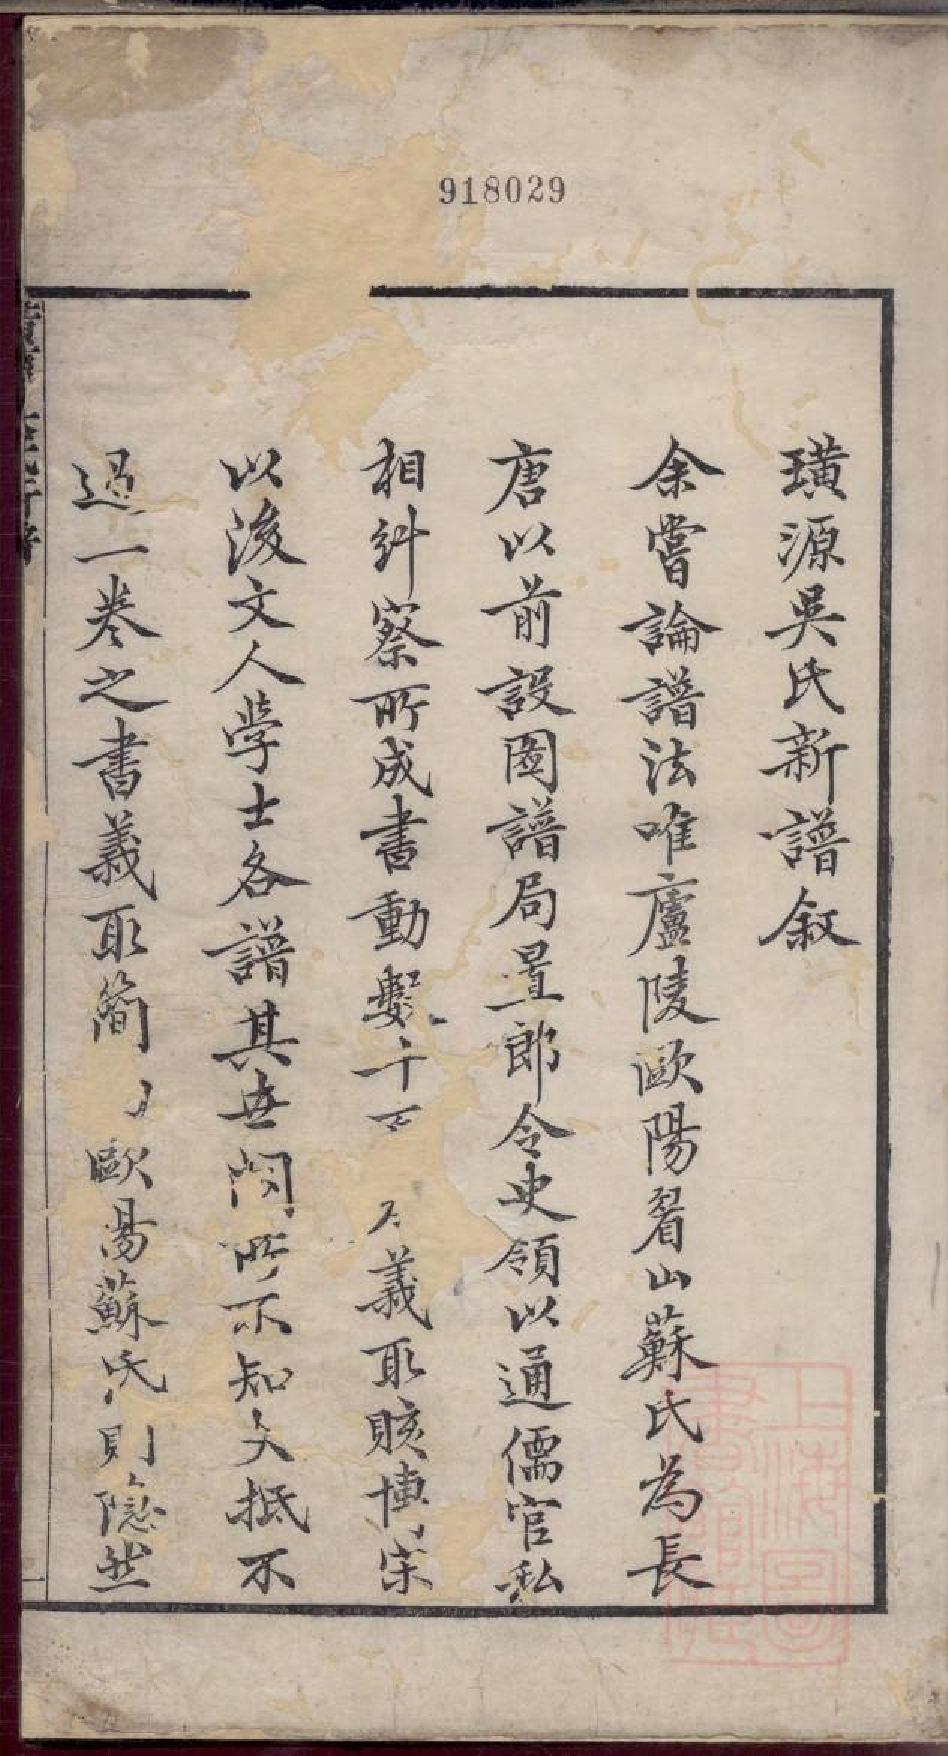 918029
璜源吳氏新譜叙
余嘗論譜法唯廬陵歐陽眉山蘇氏為長
唐以前設圖譜局置郎令史領以通儒官私
相糾察所成書動數千百義取賅博宋
以後文人學士各譜其世閥所不知大抵不
過一卷之書義取簡歐陽蘇氏則隐然
上海圖書館藏